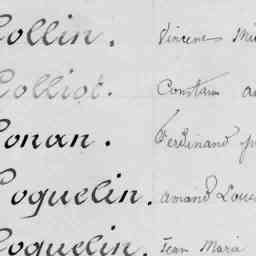 Collin. Vincent
Colliot. Constant
Conan. Ferdinand
Coquelin. Amand Louis
Coquelin. Jean Marie